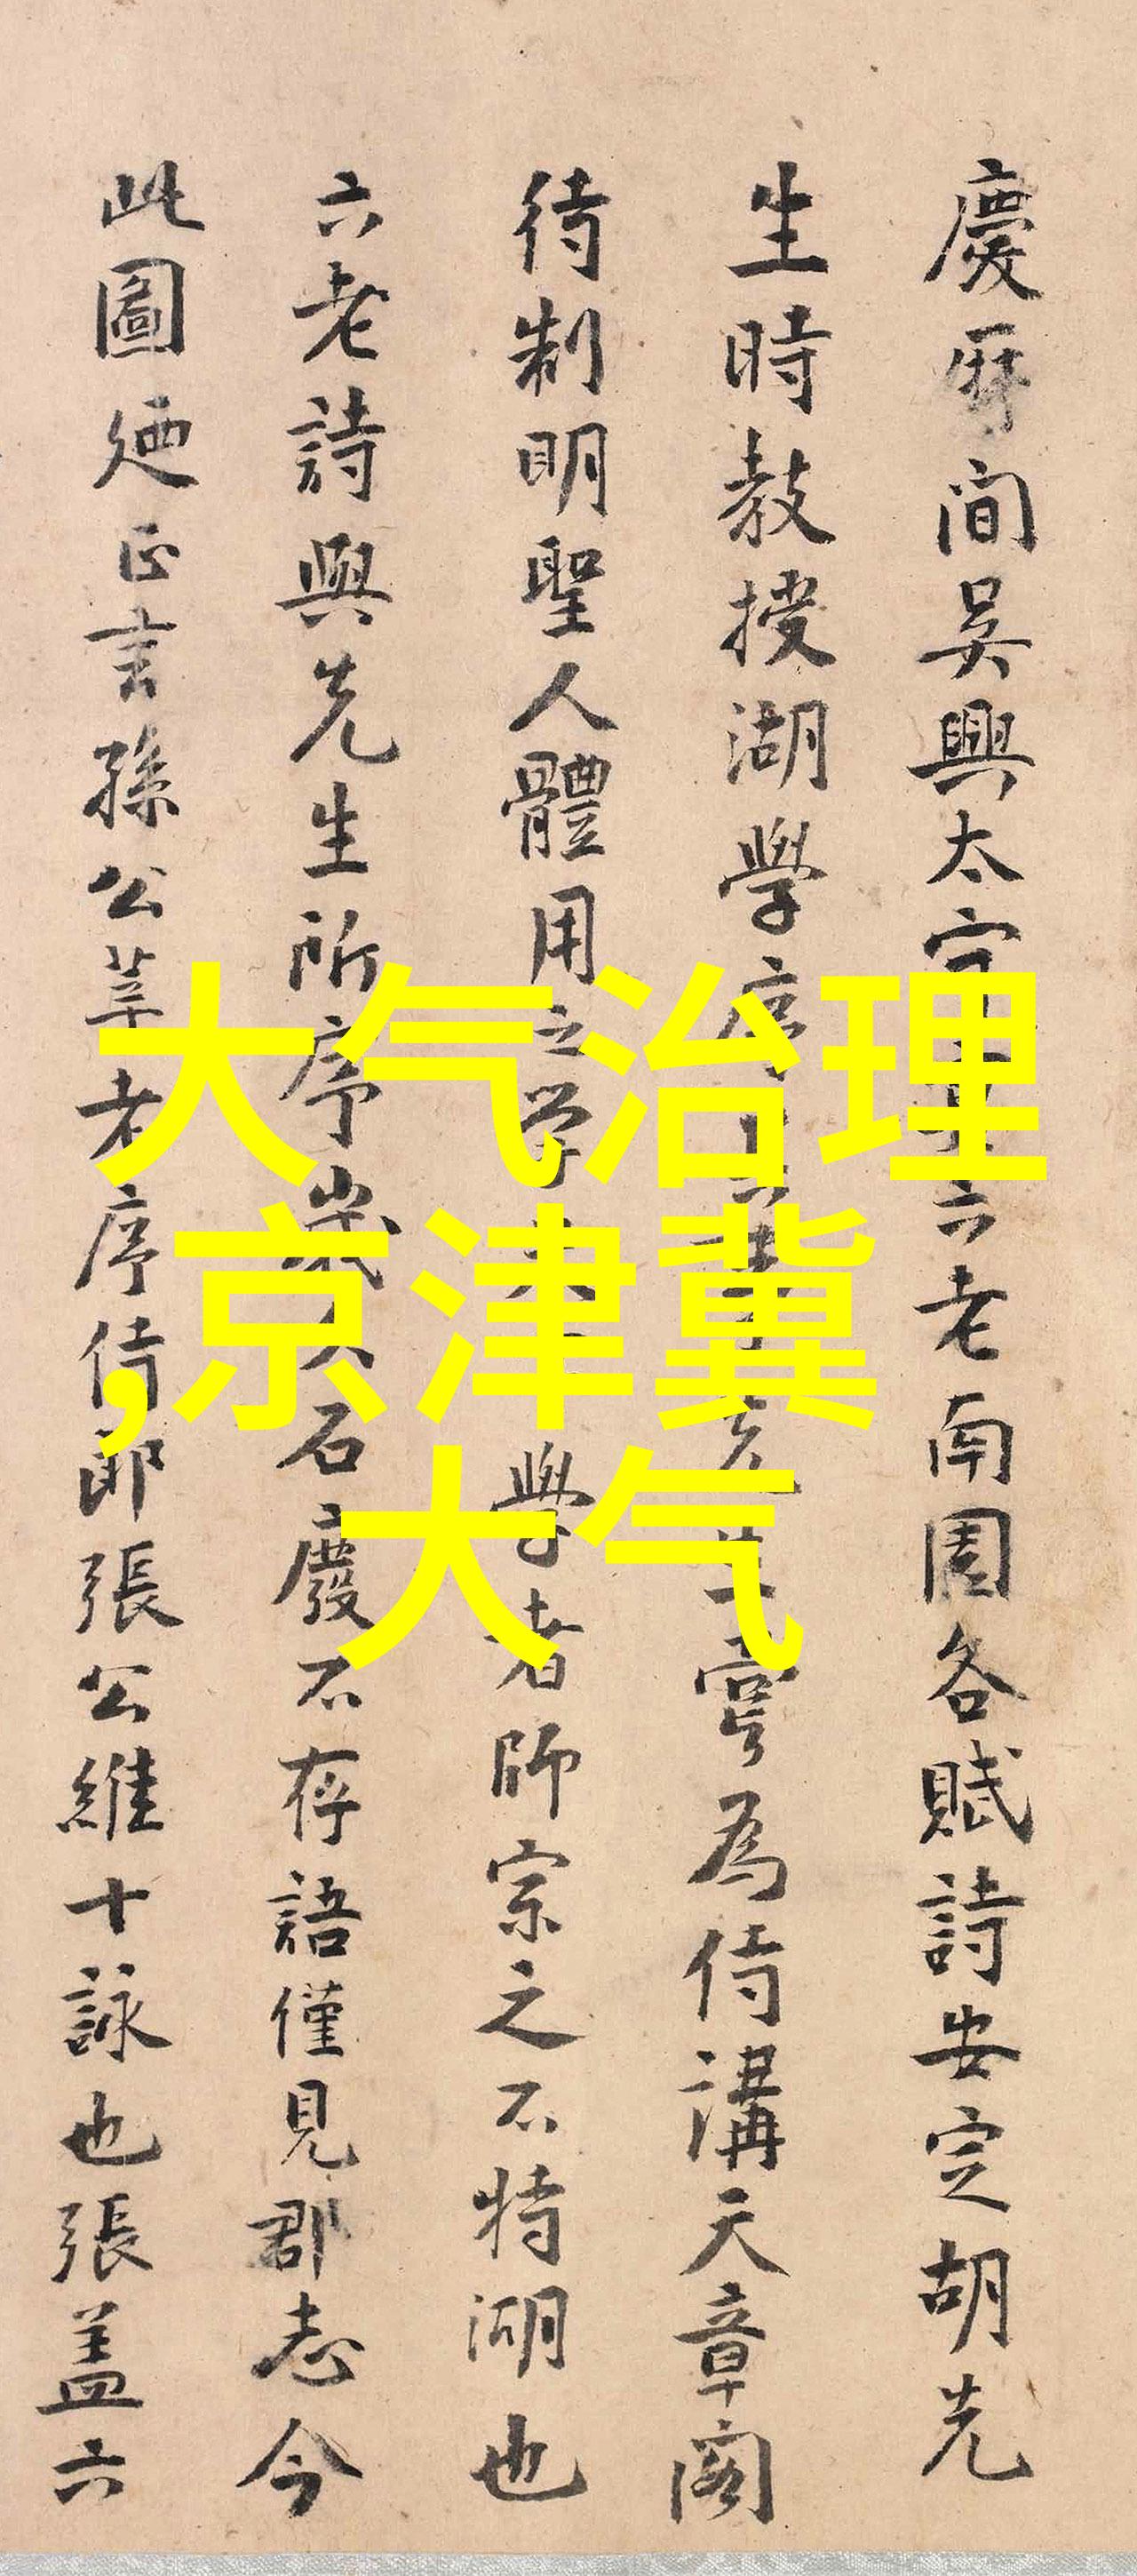 慶厤間吳興太守 六老南園各賦詩安定胡先
生時教授湖學序 先生嘗為侍講天章閣
待制明聖人體用之學 學者師宗之不特湖也
六老詩與先生所序歲久石廢不存語僅見郡志今
此圖廼正言孫公莘老序侍郎張公維十詠也張盖六
大气治理
,京津冀
大气